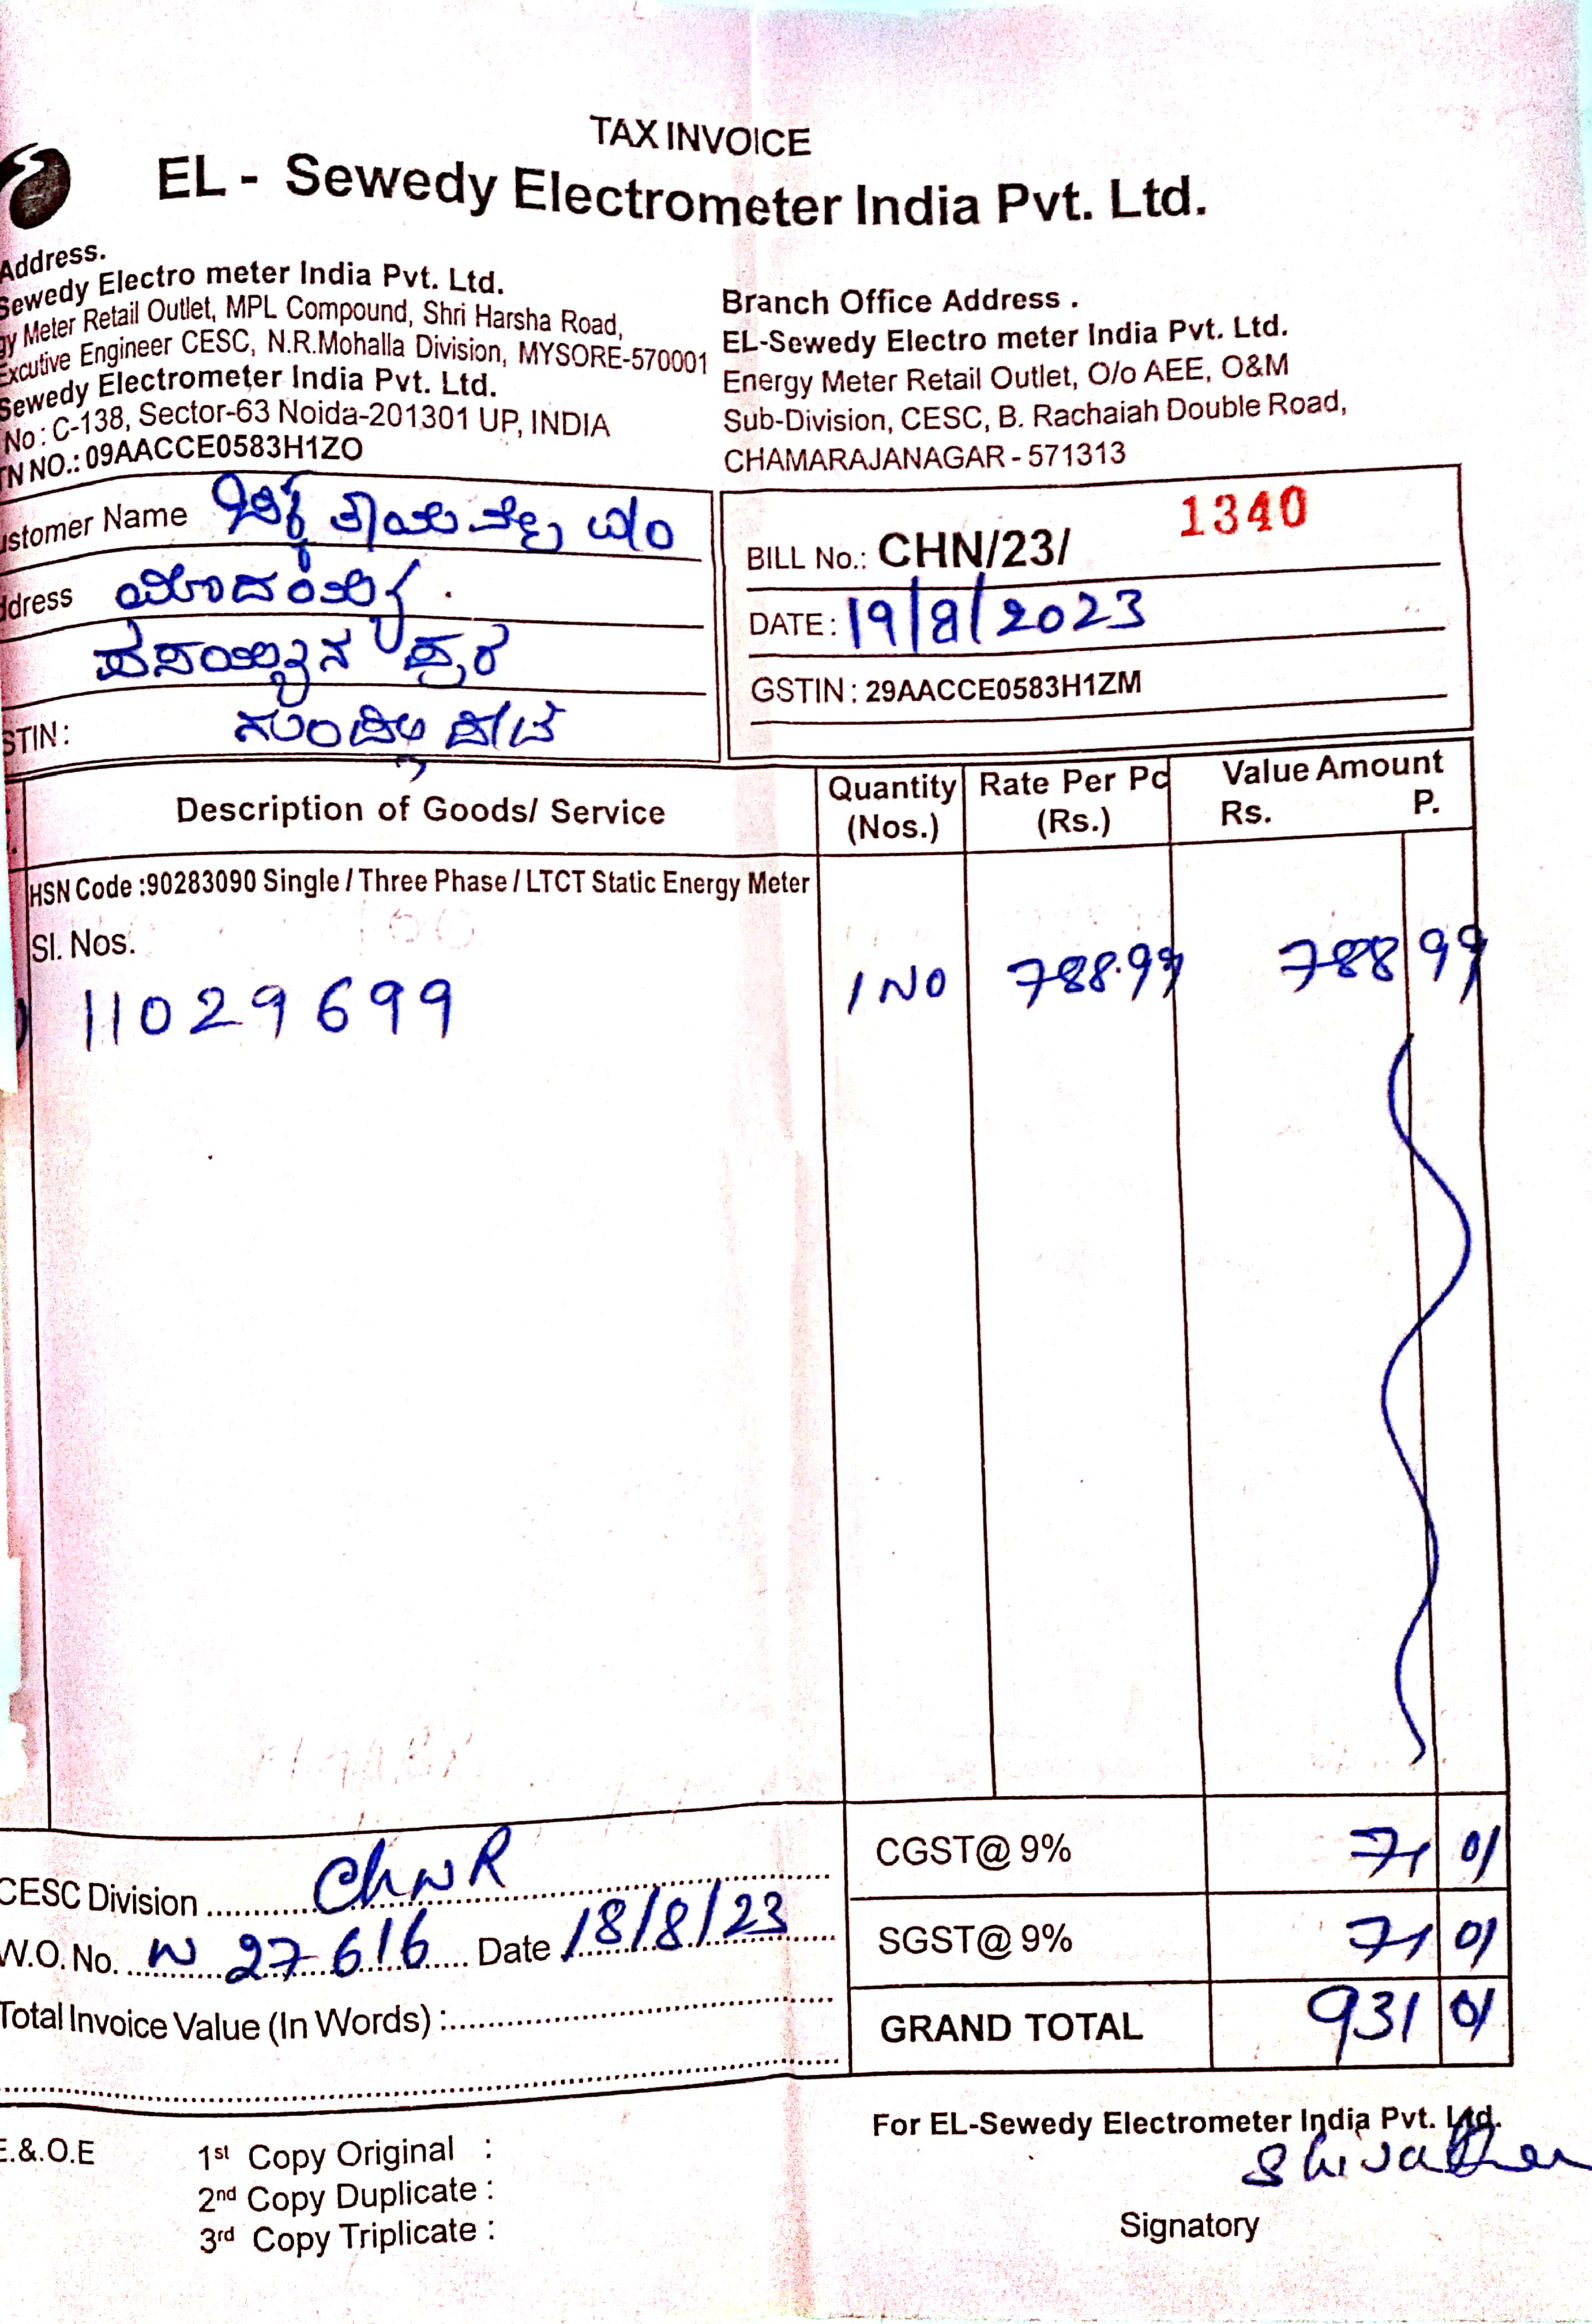 TAX INVOICE
EL - Sewedy Electrometer India Pvt. Ltd.
Address.
Sewedy Electro meter India Pvt. Ltd.
gy Meter Retail Outlet, MPL Compound, Shri Harsha Road,
Excutive Engineer CESC, N.R.Mohalla Division, MYSORE-570001
Sewedy Electrometer India Pvt. Ltd.
No : C-138, Sector-63 Noida-201301 UP, INDIA
N NO.: 09AACCE0583H1ZO
Branch Office Address .
EL-Sewedy Electro meter India Pvt. Ltd.
Energy Meter Retail Outlet, O/o AEE, O&M
Sub-Division, CESC, B. Rachaiah Double Road,
CHAMARAJANAGAR - 571313
ustomer Name ಚಿಕ್ಕ
ddress
ಪುರ
STIN:
BILL No.: CHN/23/ 1340
DATE: 19/8/2023
GSTIN : 29AACCE0583H1ZM
Description of Goods/ Service Quantity (Nos.) Rate Per Pc (Rs.) Value Amount Rs. P.
HSN Code :90283090 Single / Three Phase / LTCT Static Energy Meter
Sl. Nos.
11029699 1 NO 788.99 788 99
CGST@ 9% 71 01
SGST@ 9% 71 01
GRAND TOTAL 931 01
CESC Division ChNR
W.O. No. N 27616 Date 18/8/23
Total Invoice Value (In Words) :
For EL-Sewedy Electrometer India Pvt. Ltd.
E.&.O.E
1st Copy Original :
2nd Copy Duplicate :
3rd Copy Triplicate :
Signatory